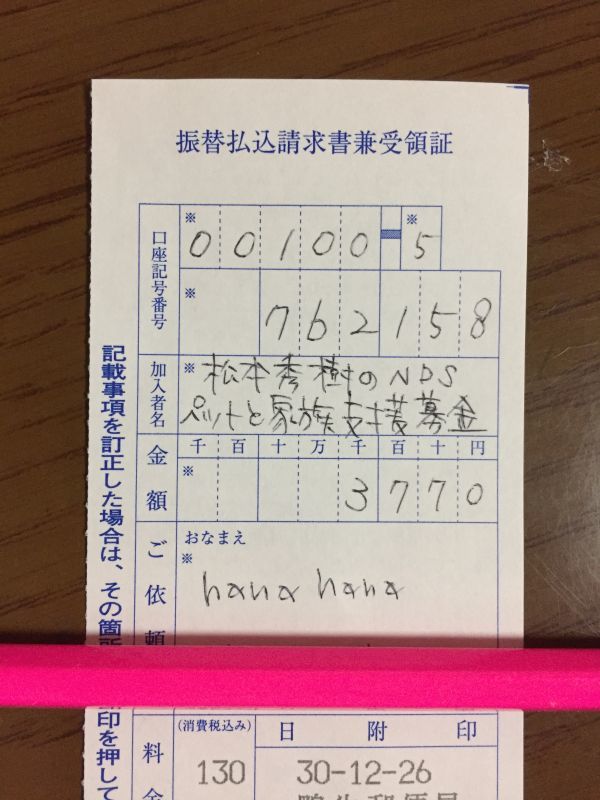 振替払込請求書兼受領証
口座記号番号
※
00100
※
5
※
762158
加入者名
※
松本秀樹のNDS
ペットと家族支援募金
金額
千百十万千百十円
※
3770
ご依頼
おなまえ
※
hana hana
料金
(消費税込み)
130
日附印
30-12-26
記載事項を訂正した場合は、その箇所
印を押して